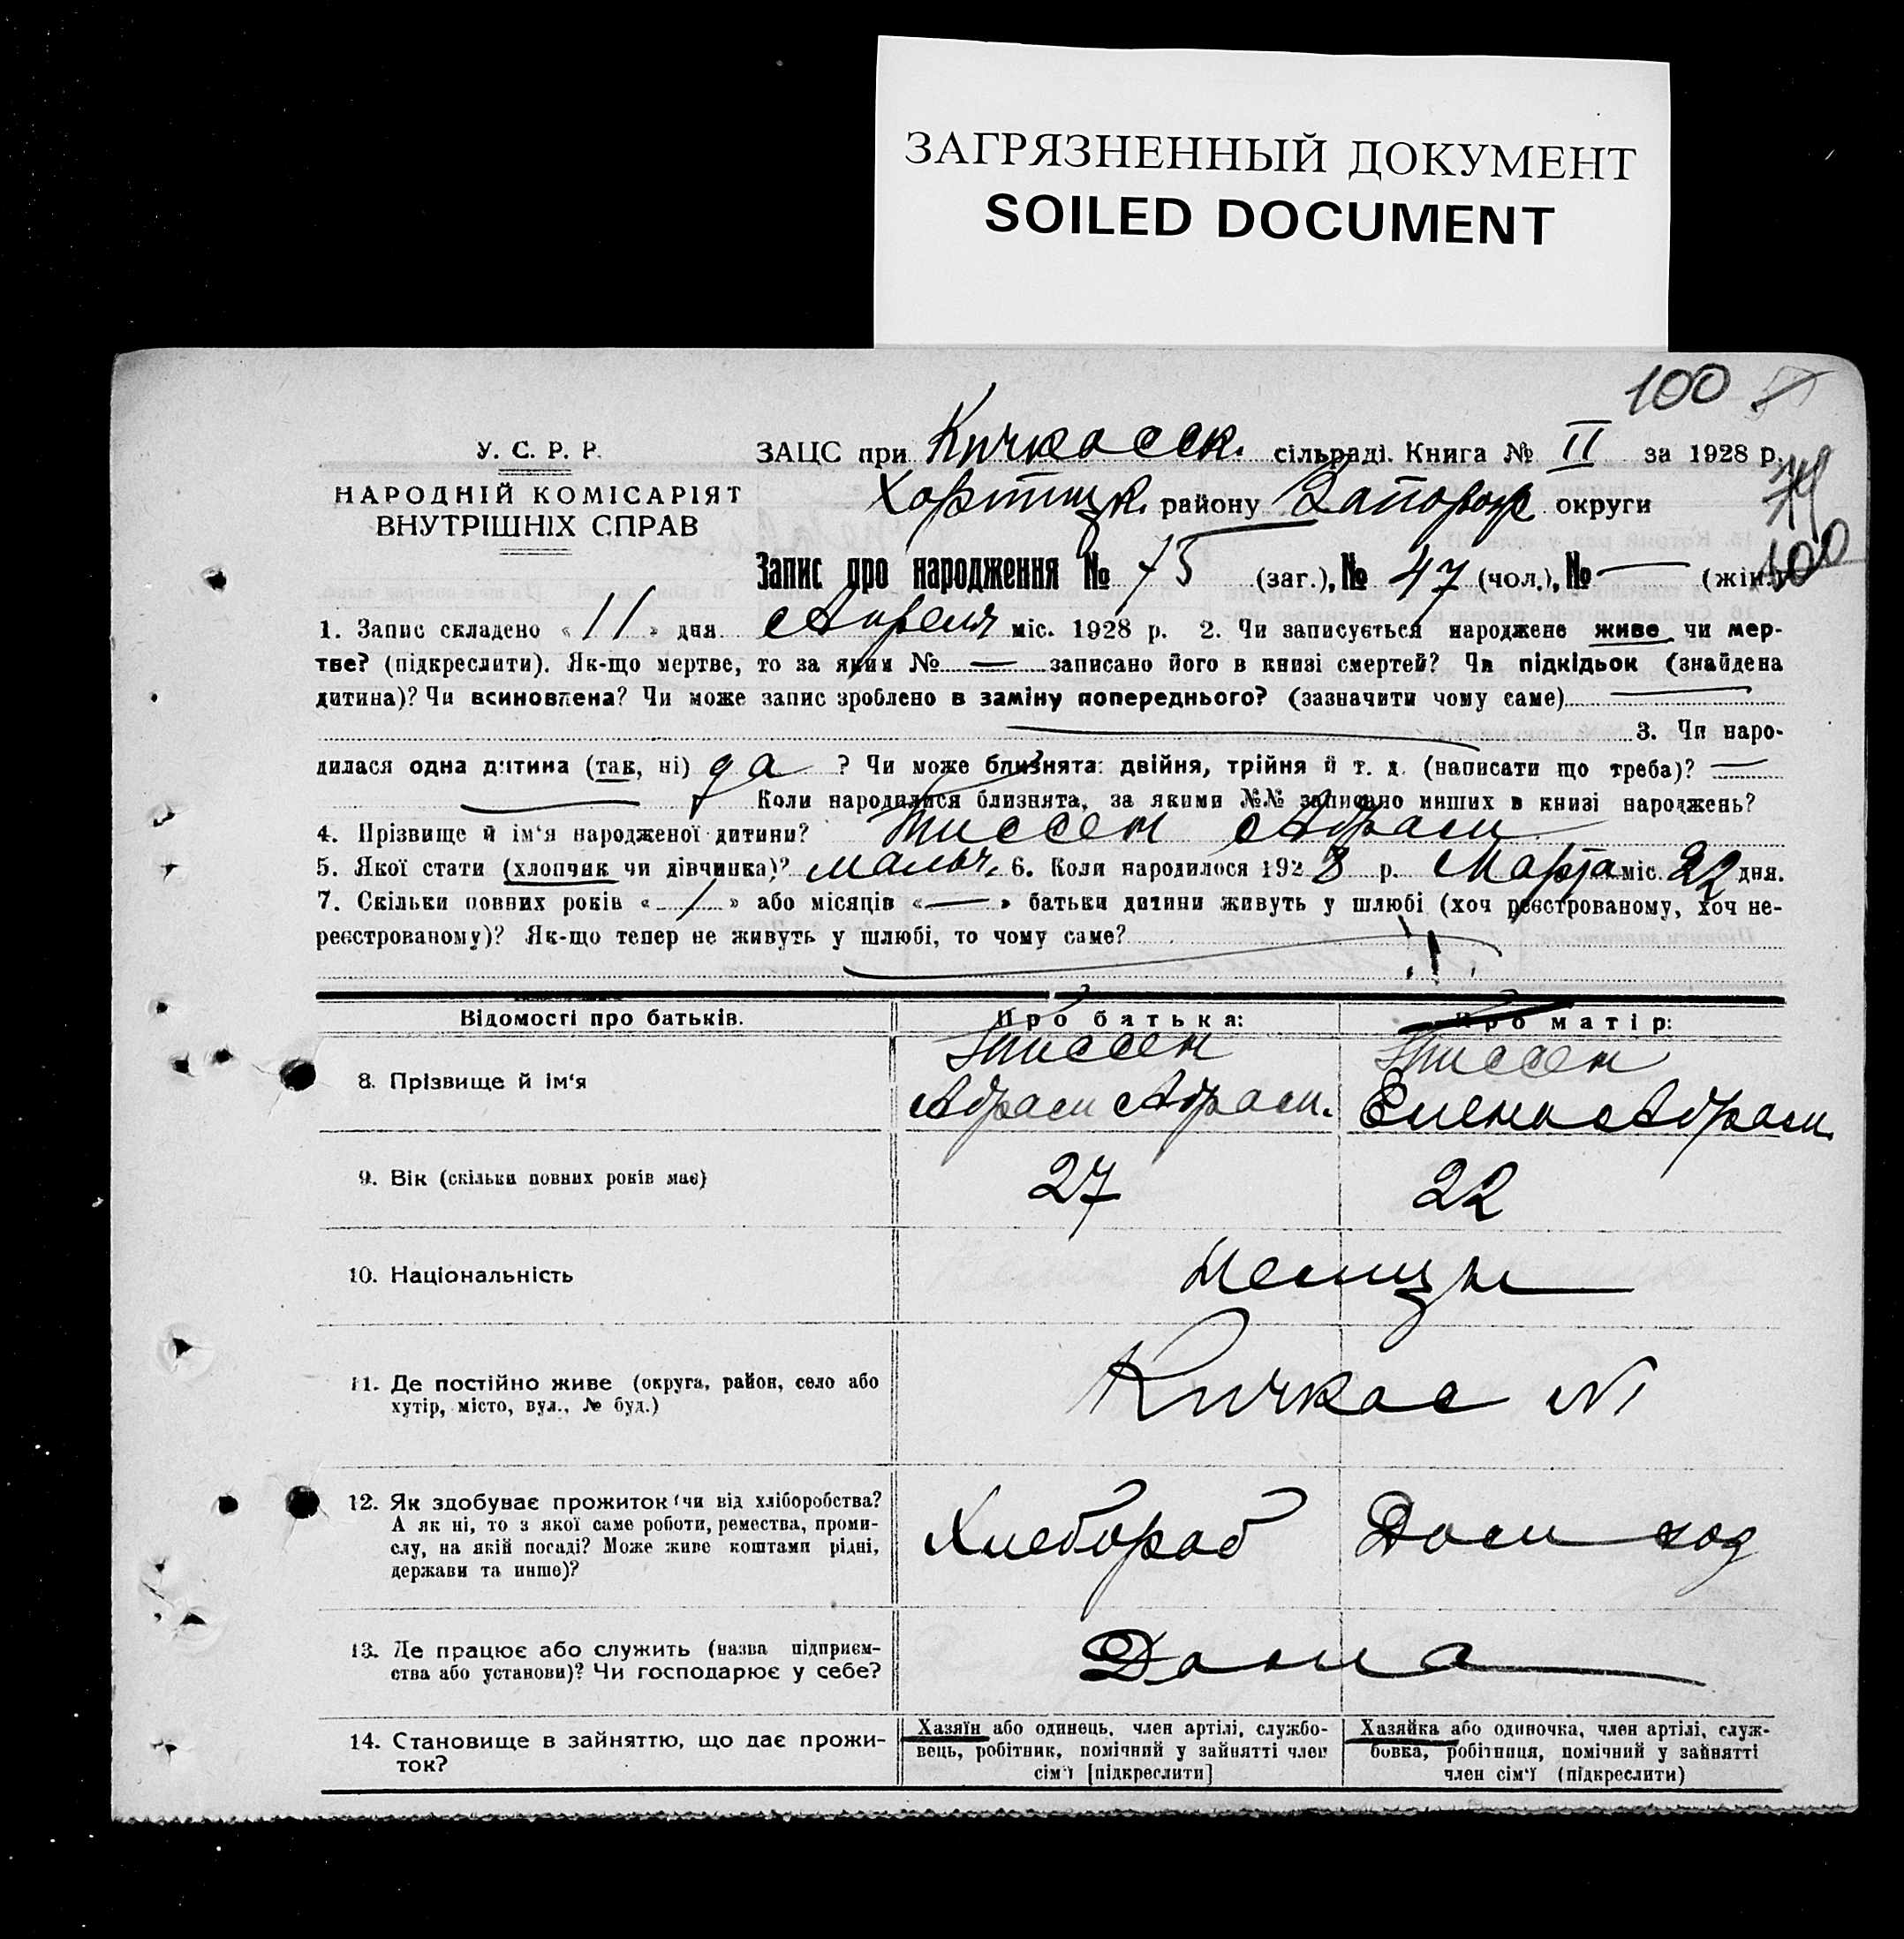 ЗАГРЯЗНЕННЫЙ ДОКУМЕНТ
SOILED DOCUMENT
100
У. С. Р. Р.
НАРОДНІЙ КОМІСАРІЯТ
ВНУТРІШНІХ СПРАВ
ЗАЦС при Кичкасск. сільраді. Книга № II за 1928 р.
Хортицк. району Запорож округи
Запис про народження № 75 (заг.), № 47 (чол.), № — (жін.)
100
1. Запис складено « 11 » дня Апреля міс. 1928 р. 2. Чи записується народжене живе чи мер-
тве? (підкреслити). Як-що мертве, то за яким № — записано його в книзі смертей? Чи підкідьок (знайдена
дитина)? Чи всиновлена? Чи може запис зроблено в заміну попереднього? (зазначити чому саме)
3. Чи наро-
дилася одна дитина (так, ні) да ? Чи може близнята: двійня, трійня й т. д. (написати що треба)? —
Коли народилися близнята, за якими №№ записано инших в книзі народжень?
4. Прізвище й ім'я народженої дитини? Тиссен Абрам
5. Якої стати (хлопчик чи дівчинка)? мальч. 6. Коли народилося 1928 р. Марта міс. 22 дня.
7. Скільки повних років « 1 » або місяців « — » батьки дитини живуть у шлюбі (хоч реєстрованому, хоч не-
реєстрованому)? Як-що тепер не живуть у шлюбі, то чому саме?
Відомості про батьків. Про батька: Про матір:
8. Прізвище й ім'я
Тиссен Абрам Абрам.
Тиссен Елена Абрам.
9. Вік (скільки повних років має) 27 22
10. Національність Немцы
11. Де постійно живе (округа, район, село або
хутір, місто, вул., № буд.)
Кичкас №1
12. Як здобуває прожиток (чи від хліборобства?
А як ні, то з якої саме роботи, ремества, проми-
слу, на якій посаді? Може живе коштами рідні,
держави та инше)?
Хлебороб Дом хоз
13. Де працює або служить (назва підприєм-
ства або установи)? Чи господарює у себе?
Дома
14. Становище в зайняттю, що дає прожи-
ток?
Хазяїн або одинець, член артілі, службо-
вець, робітник, помічний у зайнятті член
сім'ї [підкреслити]
Хазяйка або одиночка, член артілі, служ-
бовка, робітниця, помічний у зайнятті
член сім'ї (підкреслити)